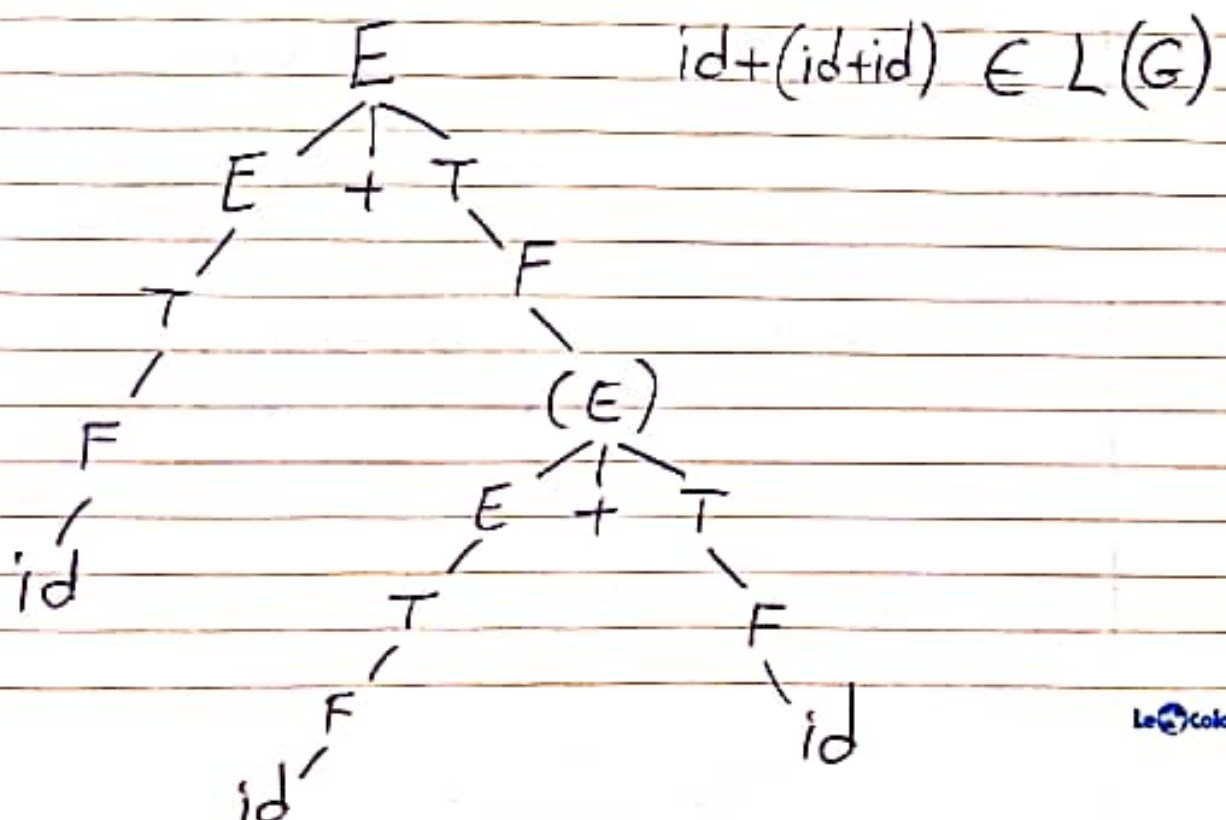 E id+(id+id) ∈ L(G)
E + T
F
T
(E)
F
E + T
id
T F
F
id
id